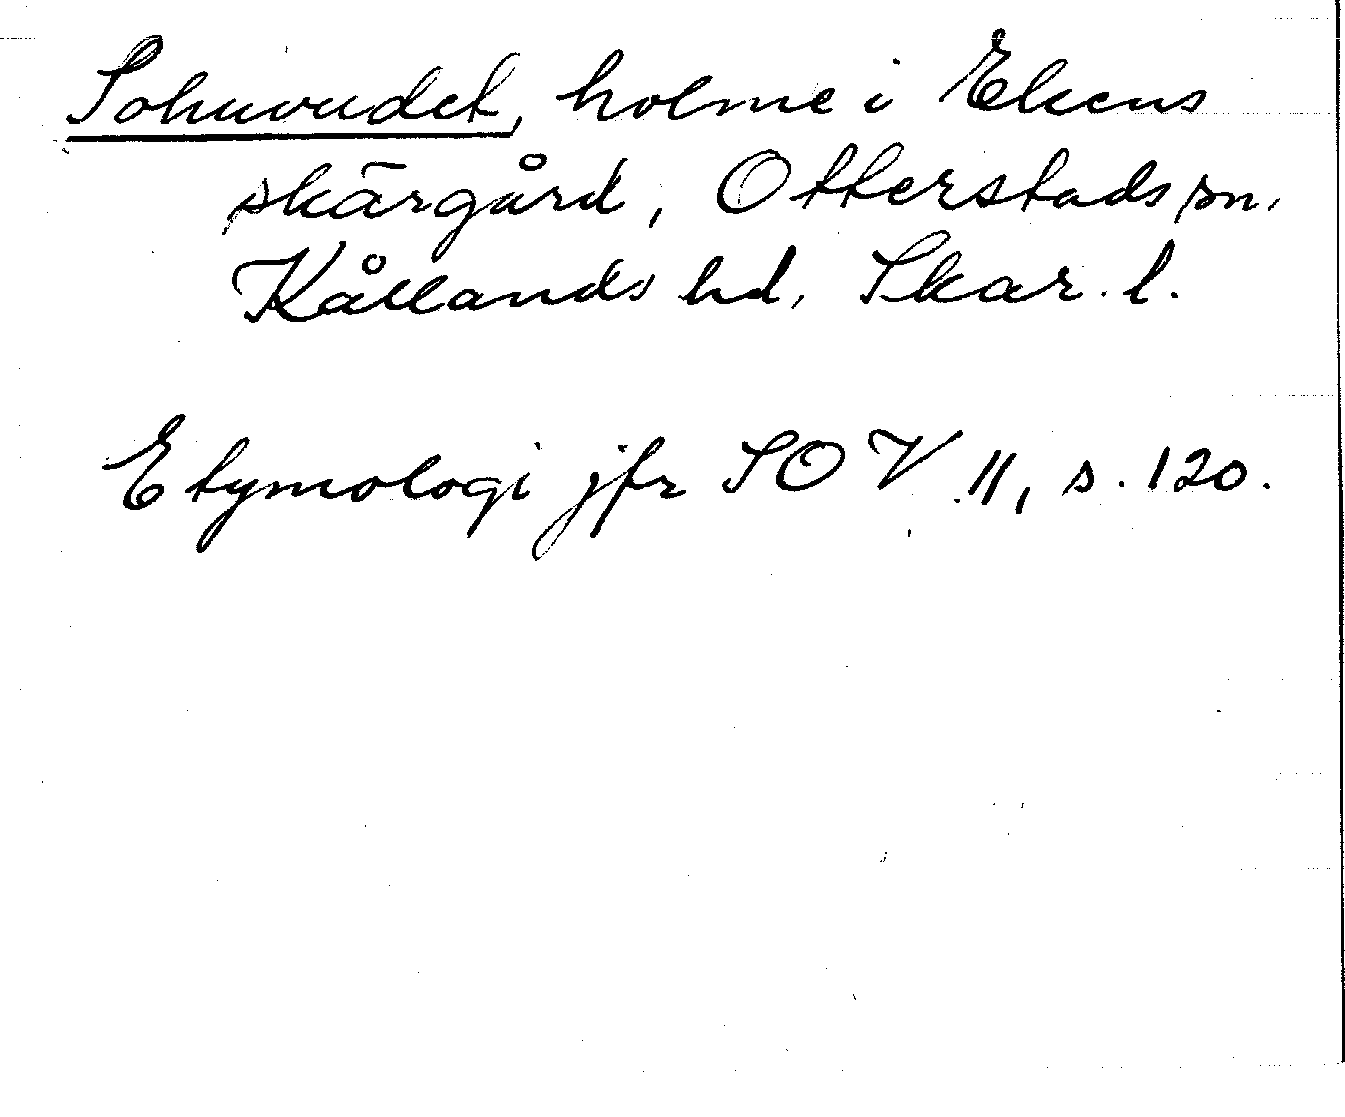 Sohuvudet, holme i Ekens
skärgård, Otterstads sn,
Kållands hd, Skar. l.
Etymologi jfr SOV 11, s. 120.